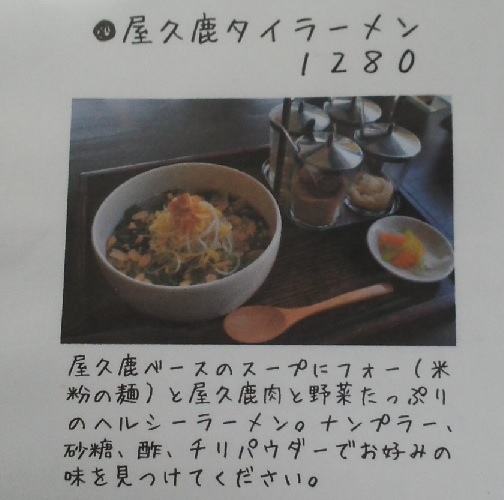 ●屋久鹿タイラーメン
1280
屋久鹿ベースのスープにフォー(米
粉の麺)と屋久鹿肉と野菜たっぷり
のヘルシーラーメン。ナンプラー、
砂糖、酢、チリパウダーでお好みの
味を見つけてください。